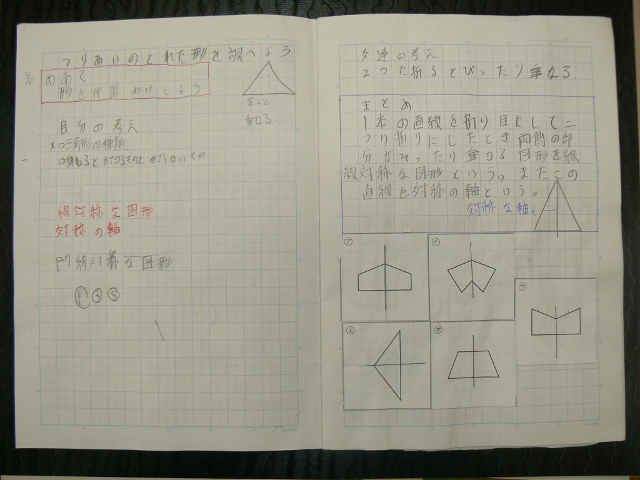 つりあいのとれた形を調べよう
めあて
形を仲間わけしよう
おると
重なる
自分の考え
線対称な図形
対称の軸
線対称な図形
① ③ ⑤
友達の考え
2つに折るとぴったり重なる
まとめ
1本の直線を折り目として二
つ折りにしたとき両側の部
分がぴったり重なる図形を線
線対称な図形という。またこの
直線を対称の軸という。
対称な軸